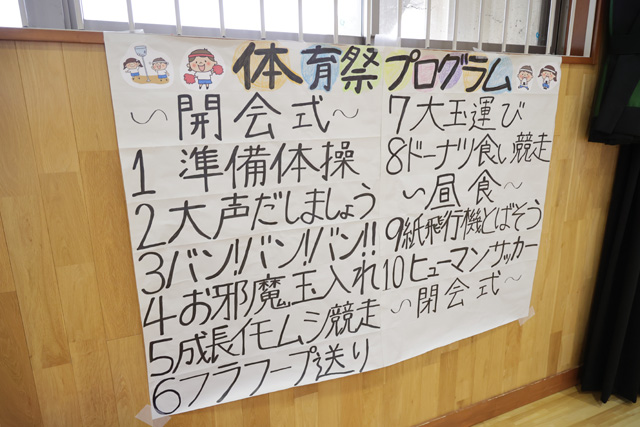 体育祭プログラム
～開会式～
1 準備体操
2 大声だしましょう
3 バン!!バン!!バン!!
4 お邪魔玉入れ
5 成長イモムシ競走
6 フラフープ送り
7 大玉運び
8 ドーナツ食い競走
～昼食～
9 紙飛行機とばそう
10 ヒューマンサッカー
～閉会式～